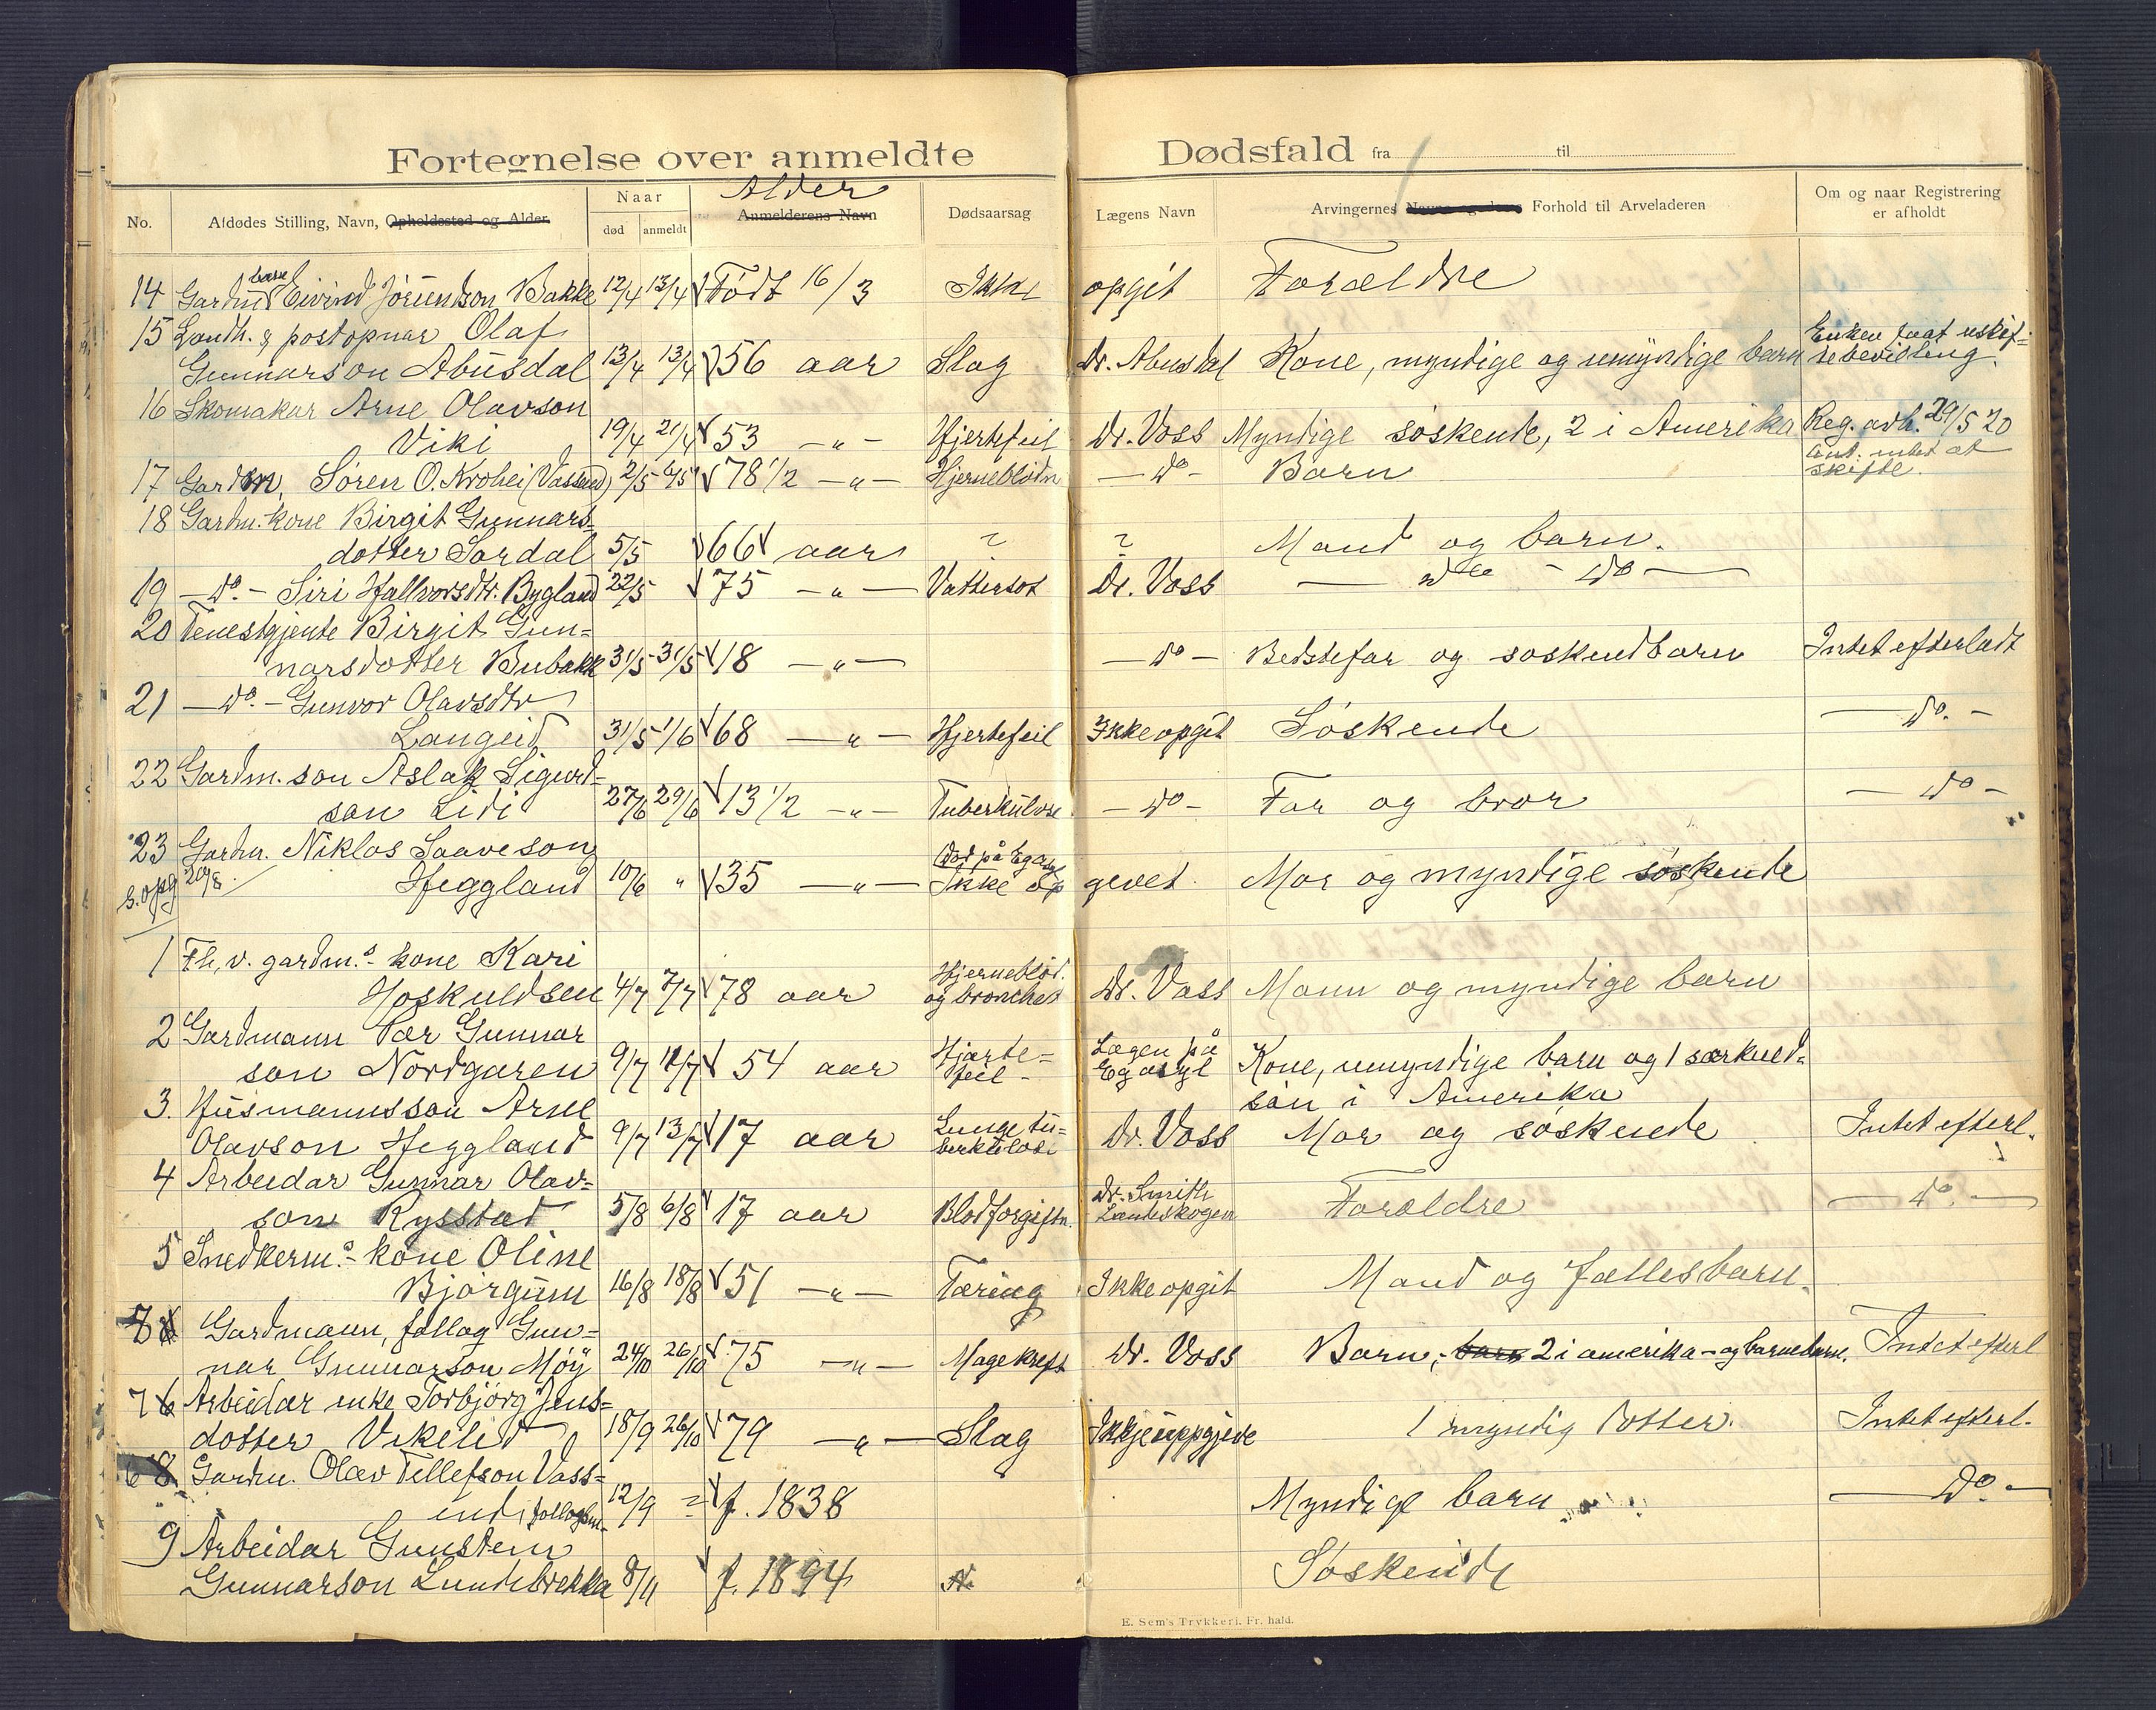 Fortegnelse over anmeldte Dødsfald fra til
No. Afdødes Stilling, Navn, Opholdssted og Alder. Naar død anmeldt Alder Anmelderens Navn Dødsaarsag Lægens Navn Arvingernes Forhold til Arveladeren Om og naar Registrering er afholdt
14 Gardm barn Eivind Jörundson Bakke 12/4 13/4 Født 16/3 Ikke opgit Forældre
15 Landh. & postopnar Olaf
Gunnarson Abusdal 13/4 13/4 56 aar Slag Dr. Abusdal Kone, myndige og umyndige barn Enken faat uskif-
tebevilling.
16 Skomakar Arne Olavson
Viki 19/4 21/4 53 —„— Hjertefeil Dr. Voss Myndige søskende, 2 i Amerika Reg. avh. 29/5 20
Ant: intet at
skifte.
17 Gardm. Søren O. Krohei (Vassend) 2/5 6/5 78 1/2 —„— Hjerneblødn —do— Barn
18 Gardm. kone Birgit Gunnars-
dotter Sordal 5/5 66 aar ? ? Mand og barn.
19 —do.— Siri Hallvorsdtr. Bygland 22/5 75 —„— Vattersot Dr. Voss — do — do —
20 Tenestgjente Birgit Gun-
narsdotter Bubakk 31/5 31/5 18 —„— —do— Bedstefar og søskendbarn Intet efterladt
21 —do.— Gunvor Olavsdtr
Langeid. 31/5 1/6 68 —„— Hjertefeil Ikke opgit Søskende —do.—
22 Gardm. son Aslak Sigurd-
son Lidi 27/6 29/6 13 1/2 —„— Tuberkulose —do— Far og bror —do—
23 Gardm. Niklos Saaveson
s. opg 20/8. Heggland 10/6 „ 35 —„— Død på Eg asyl Ikke opgevet. Mor og myndige søskende
1 Fh. v. gardm.s kone Kari
Hoskuldsen 4/7 7/7 78 aar Hjerneblød.
og bronches Dr. Voss Mann og myndige barn
2 Gardmann Tor Gunnar
son Nordgaren 9/7 11/7 54 aar Hjarte-
feil- Lægen på
Eg asyl Kone, umyndige barn og 1 særkuld-
son i Amerika
3. Husmannsson Arne
Olavson Heggland 9/7 13/7 17 aar Lungetu-
berkulose Dr. Voss Mor og søskende Intet efterl.
4 Arbeidar Gunnar Olav-
son Rysstad 5/8 6/8 17 aar Blodforgiftn. Dr. Smith
Landeskogen Forældre —do.—
5 Snedkerm.s kone Oline
Bjorgum 16/8 18/8 51 —„— Tæring Ikke opgit Mand og fællesbarn.
8 Gardmann, follog Gun-
nar Gunnarson Möy 24/10 26/10 75 —„— Magekreft Dr. Voss Barn, barn 2 i amerika - og barnebarn. Intet efterl
7 6 Arbeidar enke Torbjørg Jens-
dotter Vikelid 18/9 26/10 79 —„— Slag Ikkje uppgjeve 1 myndig dotter. Intet efterl.
6 8 Gardm. Olav Tellefson Vass-
end, follogsm. 12/9 = f. 1838 Myndige barn —do.—
9 Arbeidar Gunstein
Gunnarson Lundebrekka 8/11 f. 1894 Søskende
E. Sem's Trykkeri. Fr.hald.